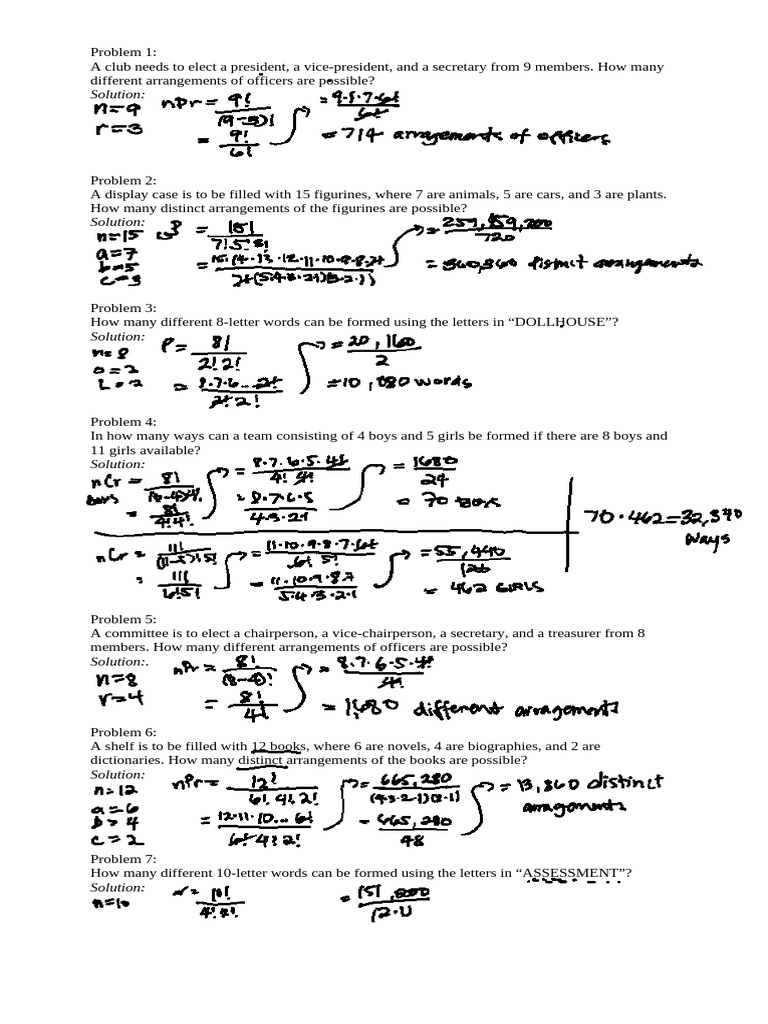 Problem 1:
A club needs to elect a president, a vice-president, and a secretary from 9 members. How many
different arrangements of officers are possible?
Solution:
n=9
r=3
nPr = 9! / (9-3)!
= 9! / 6!
= 9·8·7·6! / 6!
= 714 arragements of officers
Problem 2:
A display case is to be filled with 15 figurines, where 7 are animals, 5 are cars, and 3 are plants.
How many distinct arrangements of the figurines are possible?
Solution:
n=15
a=7
b=5
c=3
P = 15! / 7! 5! 3!
= 15·14·13·12·11·10·9·8·7! / 7!(5·4·3·2·1)(3·2·1)
= 259,459,200 / 720
= 360,360 distinct arrangements
Problem 3:
How many different 8-letter words can be formed using the letters in “DOLLHOUSE”?
Solution:
n=8
o=2
L=2
P = 8! / 2! 2!
= 8·7·6...2! / 2! 2!
= 20,160 / 2
= 10,080 words
Problem 4:
In how many ways can a team consisting of 4 boys and 5 girls be formed if there are 8 boys and
11 girls available?
Solution:
nCr = 8! / (8-4)!4!
Boys
= 8! / 4!4!
= 8·7·6·5·4! / 4! 4!
= 8·7·6·5 / 4·3·2·1
= 1680 / 24
= 70 Boys
70·462=32,340
ways
nCr = 11! / (11-5)!5!
= 11! / 6!5!
= 11·10·9·8·7·6! / 6! 5!
= 11·10·9·8·7 / 5·4·3·2·1
= 55,440 / 120
= 462 GIRLS
Problem 5:
A committee is to elect a chairperson, a vice-chairperson, a secretary, and a treasurer from 8
members. How many different arrangements of officers are possible?
Solution:.
n=8
r=4
nPr = 8! / (8-4)!
= 8! / 4!
= 8·7·6·5·4! / 4!
= 1,680 different arragements
Problem 6:
A shelf is to be filled with 12 books, where 6 are novels, 4 are biographies, and 2 are
dictionaries. How many distinct arrangements of the books are possible?
Solution:
n=12
a=6
b=4
c=2
nPr = 12! / 6! 4! 2!
= 12·11·10...6! / 6! 4! 2!
= 665,280 / (4·3·2·1)(2·1)
= 665,280 / 48
= 13,860 distinct
arragements
Problem 7:
How many different 10-letter words can be formed using the letters in “ASSESSMENT”?
Solution:
n=10
= 10! / 4! 2!
= 151,200 /